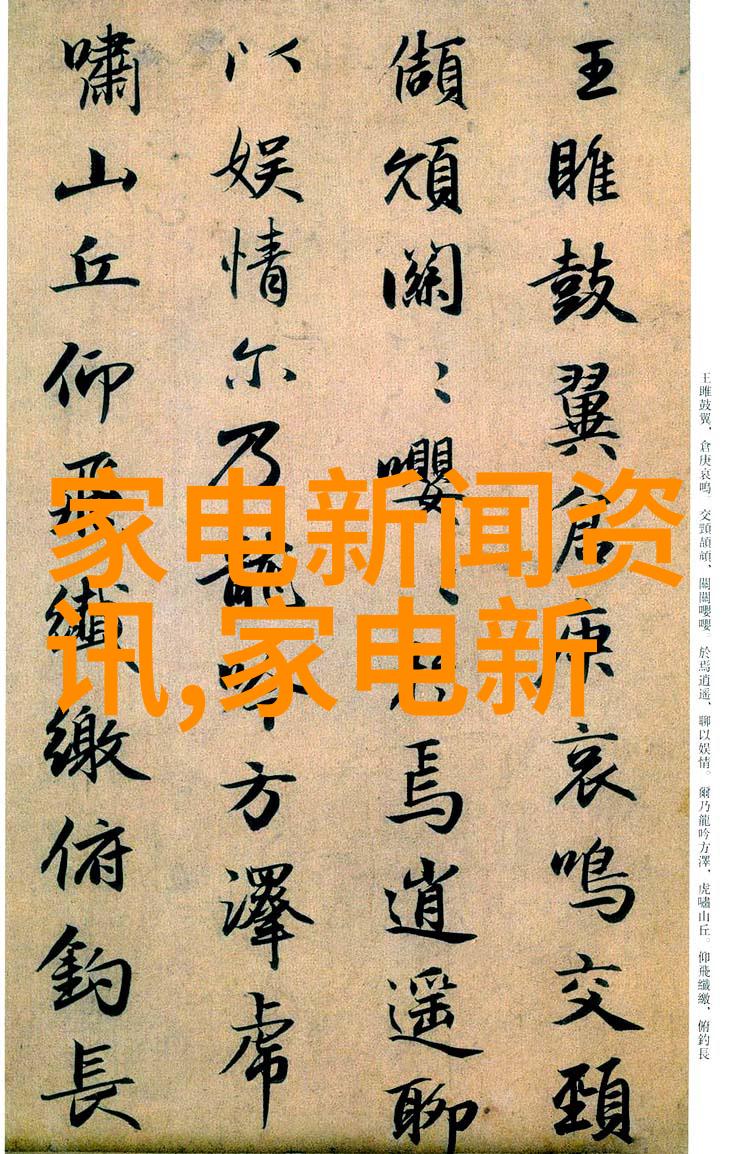 王雎鼓翼倉庚哀鳴交頸
頡頏關〻嚶〻於焉逍遥聊
以娱情尓乃龍吟方澤虎
嘯山丘仰飛纖繳俯釣長
王雎鼓翼、倉庚哀鳴。交頸頡頏、關關嚶嚶。於焉逍遥、聊以娱情。爾乃龍吟方澤、虎嘯山丘。仰飛纖繳、俯釣長
家电新闻资
讯,家电新